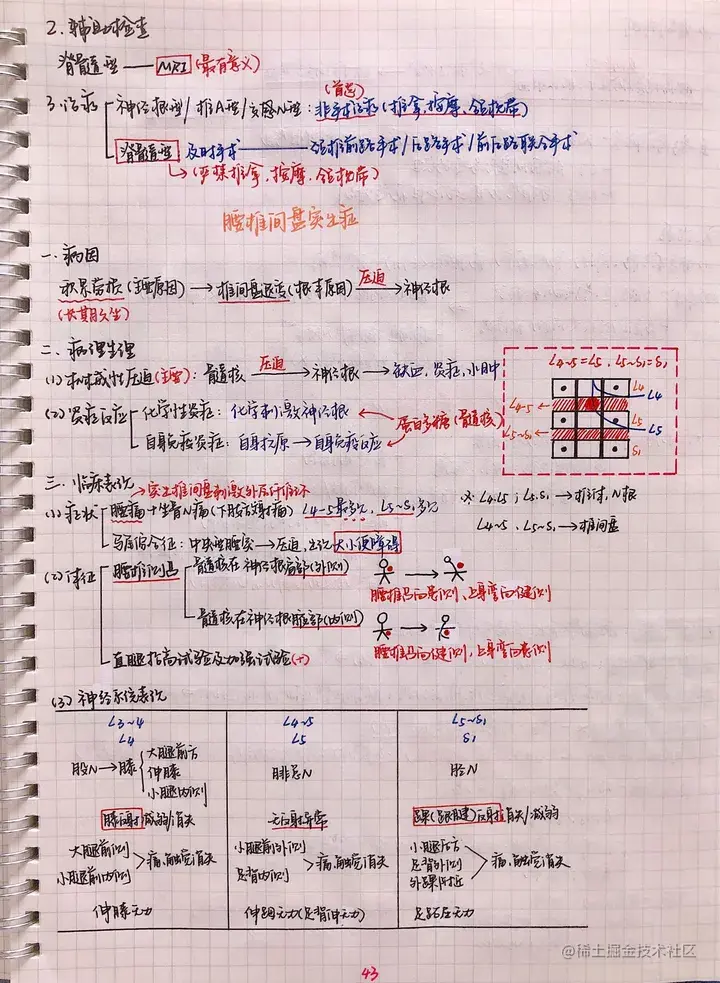 2. 辅助检查
脊髓型——MRI(最有意义)
3.治疗 神经根型/椎A型/交感N型:非手术治疗(推拿、按摩、颌枕带)
(首选)
脊髓型 及时手术——颈椎前路手术/后路手术/前后路联合手术
(严禁推拿、按摩、颌枕带)
腰椎间盘突出症
一.病因
积累劳损(主要原因)→椎间盘退变(根本原因) 压迫→神经根
(长期久坐)
二.病理生理
(1)机械性压迫(主要):髓核 压迫→神经根→缺血、炎症、水肿
(2)炎症反应 化学性炎症:化学刺激神经根
蛋白多糖(髓核)
自身免疫炎症:自身抗原→自身免疫反应
L4~5=L5、L5~S1=S1
L4
L4
L4~5
L5
L5
L5~S1
S1
三.临床表现 突出椎间盘刺激外层纤维环
(1)症状 腰痛+坐骨N痛(下肢放射痛) L4~5最多见、L5~S1多见
马尾综合征:中央型腰突→压迫,出现大小便障碍
※ L4.L5;L5.S1→椎体、N根
L4~5、L5~S1→椎间盘
(2)体征 腰椎侧凸 髓核在神经根肩部(外侧)
腰椎凸向患侧、上身弯向健侧
髓核在神经根腋部(内侧)
腰椎凸向健侧、上身弯向患侧
直腿抬高试验及加强试验(+)
(3)神经系统表现
L3~4 L4~5 L5~S1
L4 L5 S1
股N→膝 大腿前方 伸膝 小腿内侧
腓总N
胫N
膝反射减弱/消失 无反射异常 踝(跟腱)反射消失/减弱
大腿前侧 小腿前内侧 痛、触觉消失
小腿前外侧 足背内侧 痛、触觉消失
小腿后方 足背外侧 外踝附近 痛、触觉消失
伸膝无力 伸踇无力(足背伸无力) 足跖屈无力
@稀土掘金技术社区
43